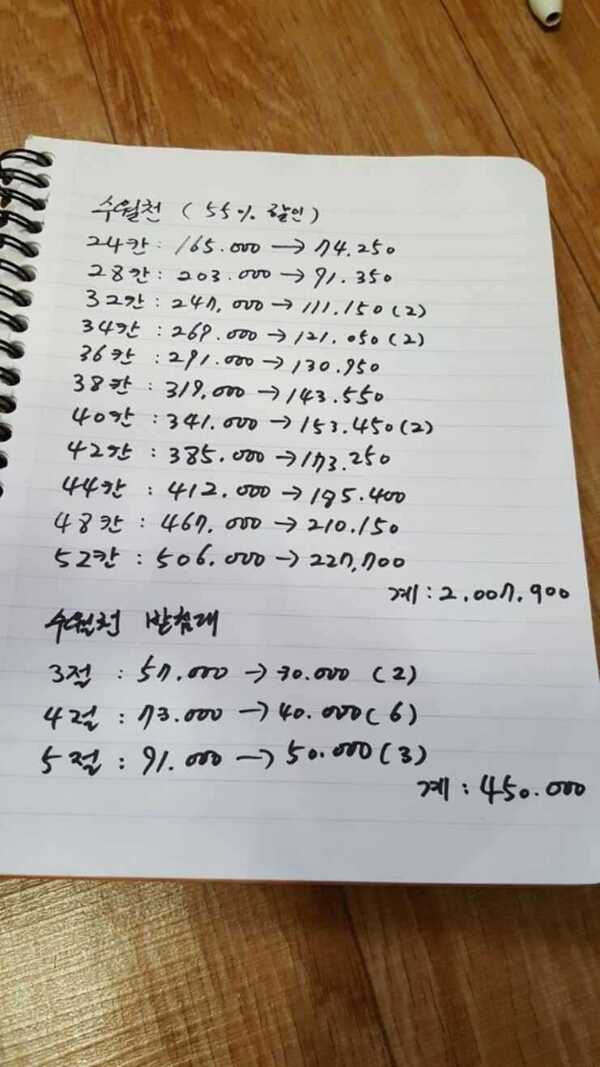 수월천 (55% 할인)
24칸 : 165.000 → 74.250
28칸 : 203.000 → 91.350
32칸 : 247,000 → 111.150 (2)
34칸 : 269.000 → 121.050 (2)
36칸 : 291.000 → 130.950
38칸 : 319,000 → 143.550
40칸 : 341.000 → 153.450 (2)
42칸 : 385.000 → 173.250
44칸 : 412.000 → 185.400
48칸 : 467,000 → 210.150
52칸 : 506.000 → 227,700
계 : 2.007.900
수월천 받침대
3절 : 57.000 → 30.000 (2)
4절 : 73.000 → 40.000 (6)
5절 : 91.000 → 50.000 (3)
계 : 450.000